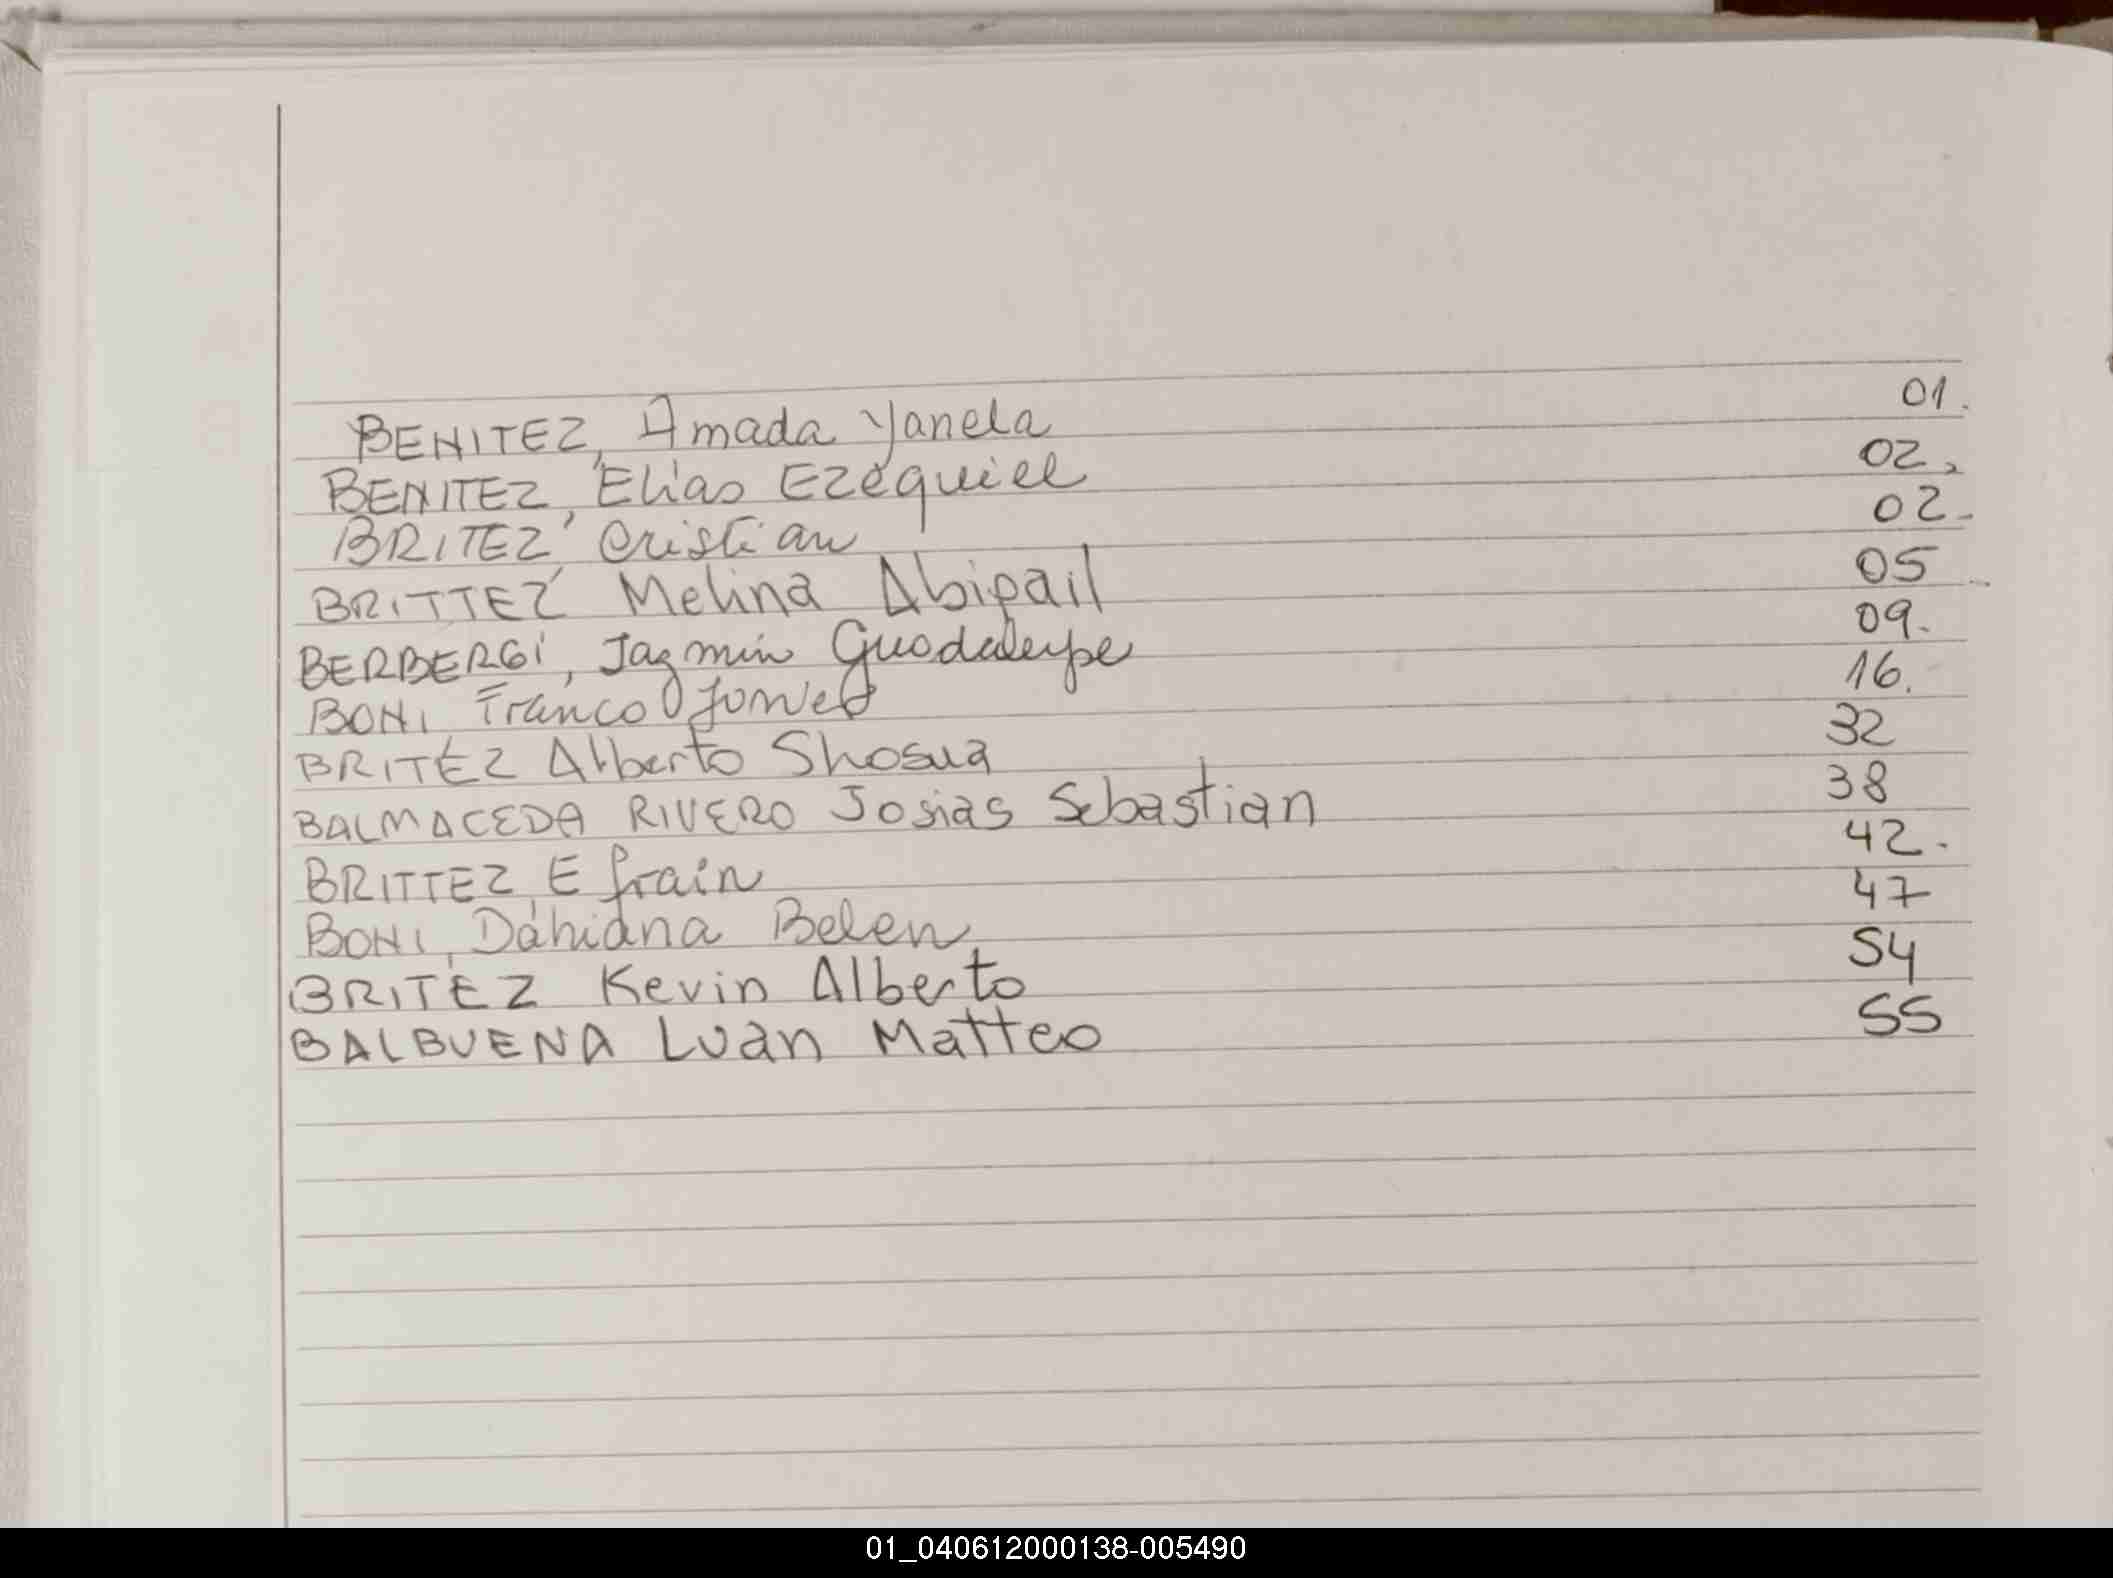 BENITEZ, Amada Yanela 01.
BENITEZ, Elias Ezequiel 02.
BRITEZ Cristian 02.
BRITTEZ Melina Abigail 05
BERBERGI, Jazmin Guadalupe 09.
BONI Franco 16.
BRITEZ Alberto Shosua 32
BALMACEDA RIVERO Josias Sebastian 38
BRITTEZ, Efrain 42.
BONI, Dahiana Belen 47
BRITEZ Kevin Alberto 54
BALBUENA Luan Matteo 55
01_040612000138-005490